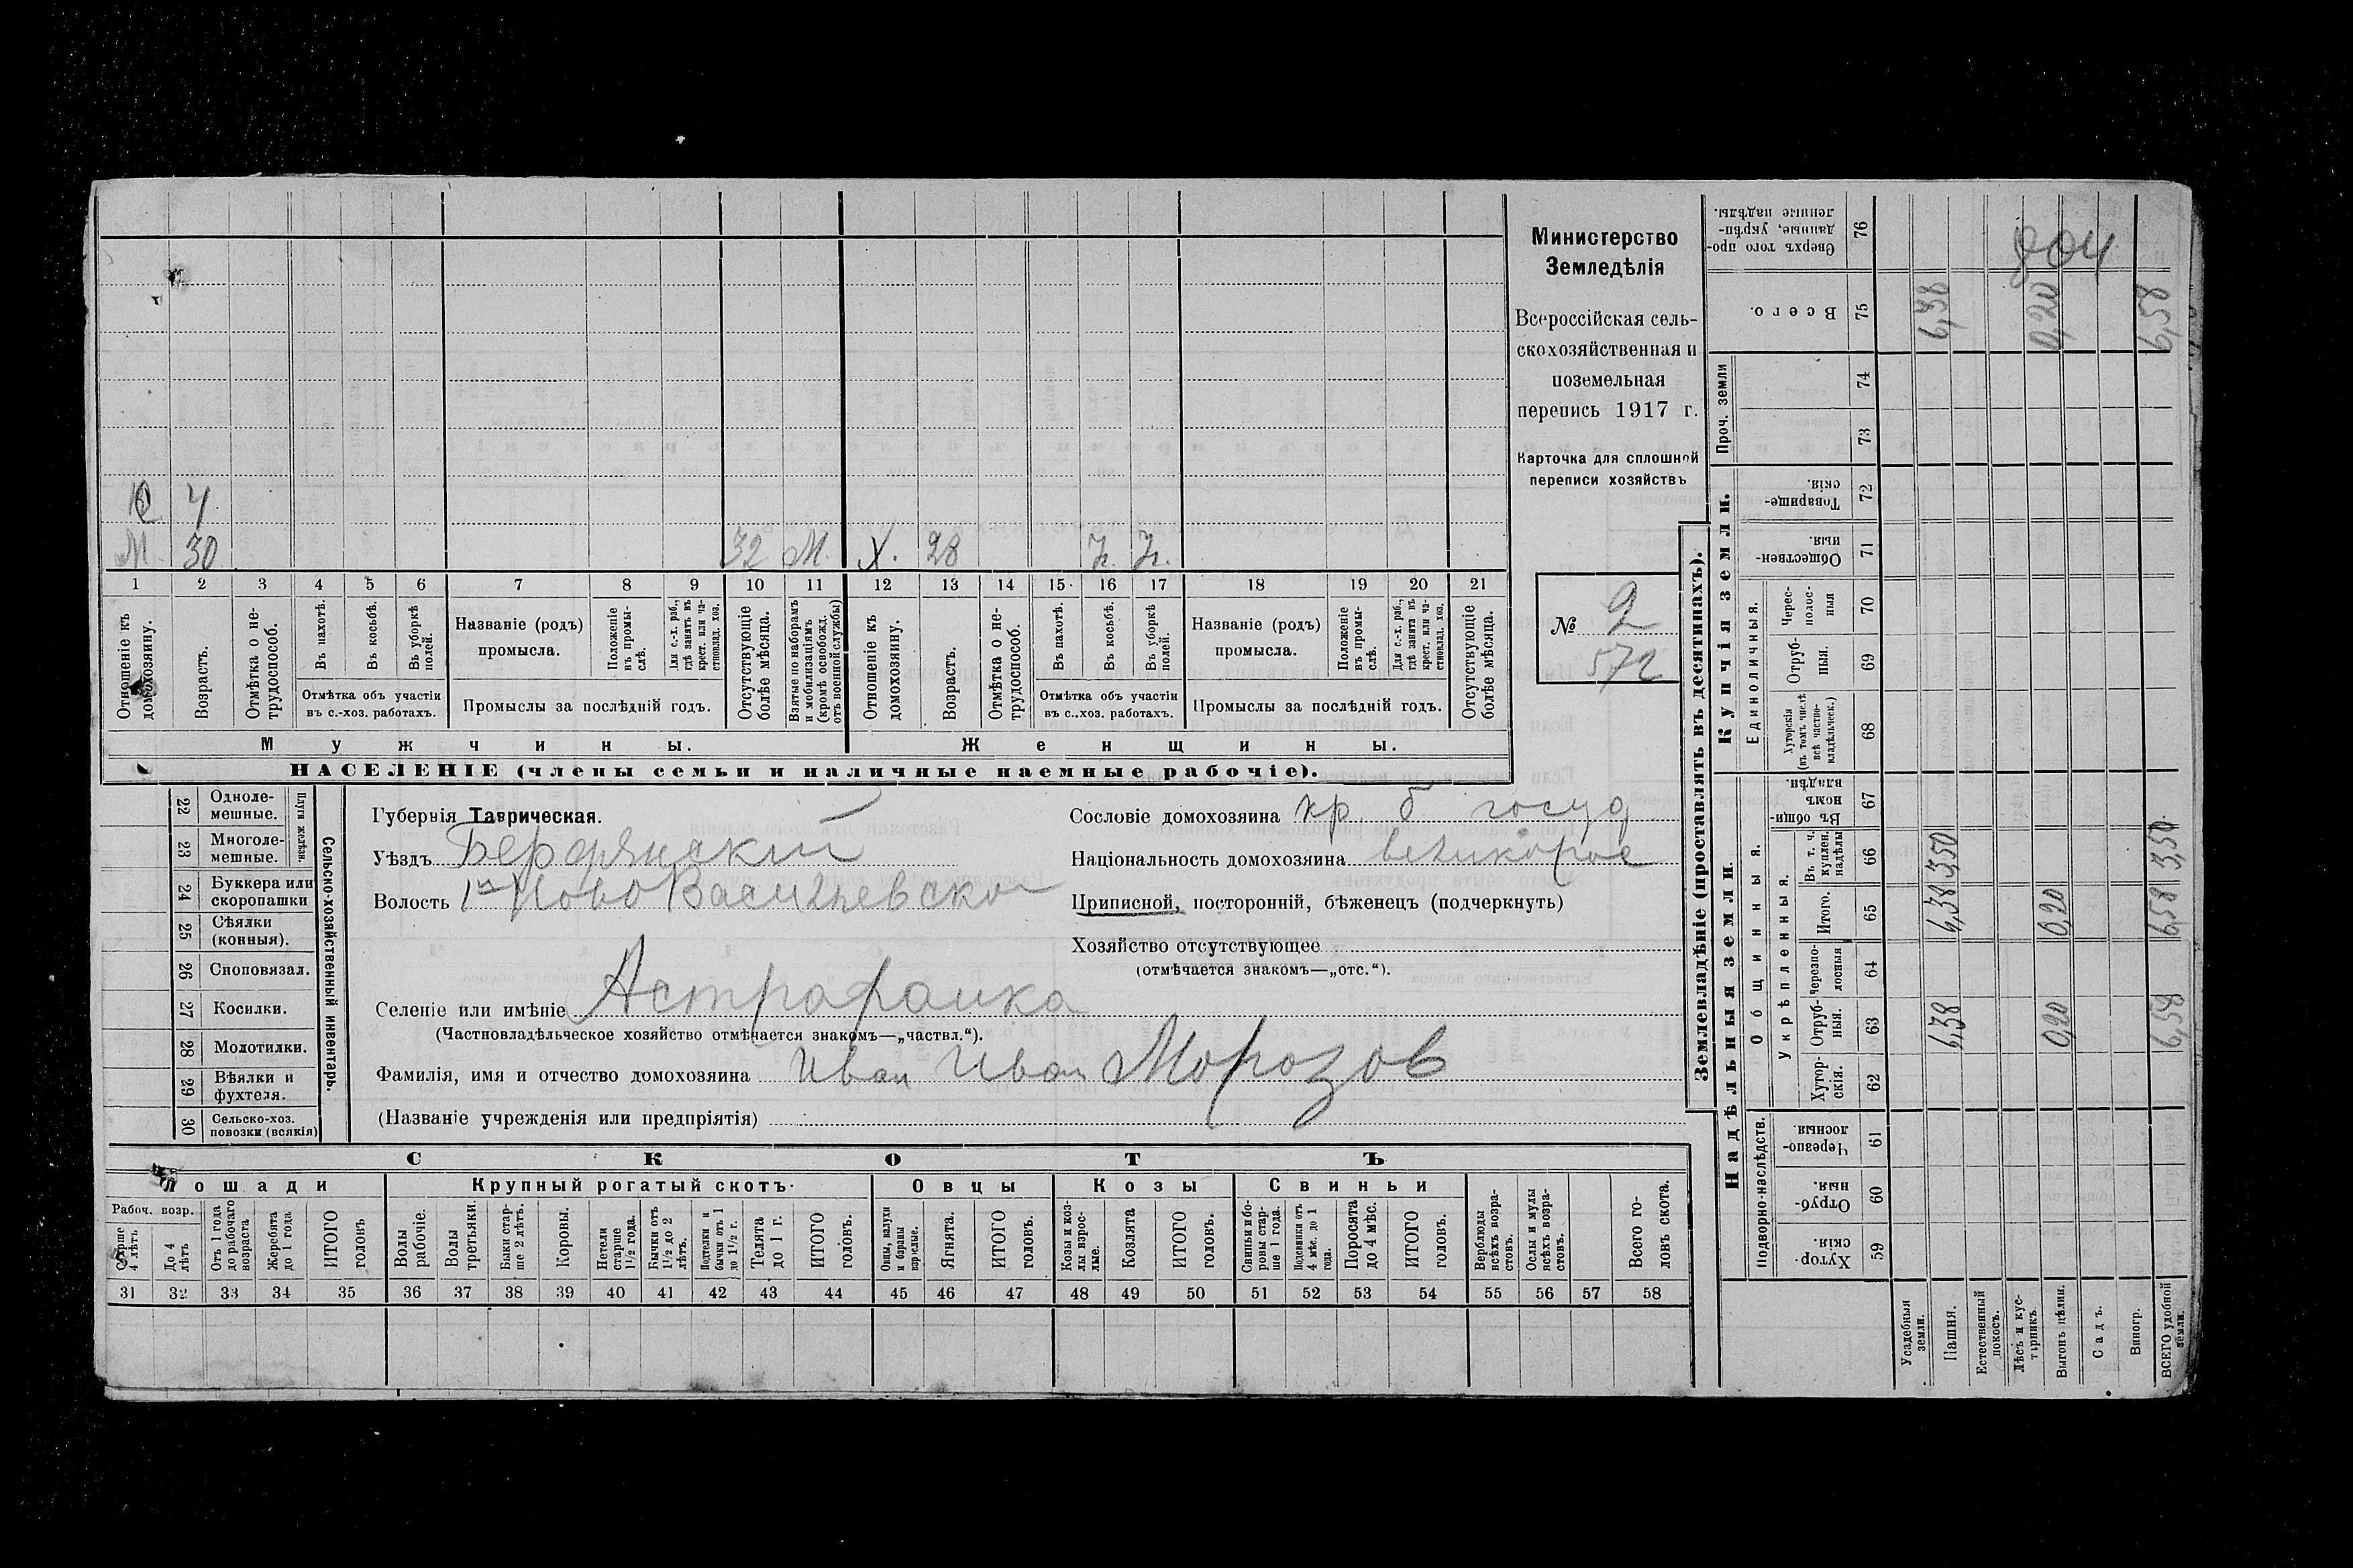 Министерство
Земледѣлія
Всероссійская сель-
скохозяйственная и
поземельная
перепись 1917 г.
Карточка для сплошной
переписи хозяйствъ
№ 2
572
С 4
М 30 32 М. Х. 28 h. h.
1 2 3 4 5 6 7 8 9 10 11 12 13 14 15 16 17 18 19 20 21
Отношеніе къ домохозяину.
Возрастъ.
Отмѣтка о не-трудоспособ.
Въ пахотѣ.
Въ косьбѣ.
Въ уборкѣ полей.
Отмѣтка объ участіи
въ с.-хоз. работахъ.
Названіе (родъ)
промысла.
Положеніе въ промы-слѣ.
Для с.-х. раб., гдѣ занятъ въ крест. или ча-стновлад. хоз.
Промыслы за послѣдній годъ.
Отсутствующіе болѣе мѣсяца.
Взятые по наборамъ и мобилизаціямъ (кромѣ освобожд. отъ военной службы)
Отношеніе къ домохозяину.
Возрастъ.
Отмѣтка о не-трудоспособ.
Въ пахотѣ.
Въ косьбѣ.
Въ уборкѣ полей.
Отмѣтка объ участіи
въ с.-хоз. работахъ.
Названіе (родъ)
промысла.
Положеніе въ промы-слѣ.
Для с.-х. раб., гдѣ занята въ крест. или ча-стновлад. хоз.
Промыслы за послѣдній годъ.
Отсутствующіе болѣе мѣсяца.
Мужчины. Женщины.
НАСЕЛЕНІЕ (члены семьи и наличные наемные рабочіе).
Сельско-хозяйственный инвентарь.
Плуги желѣзн.
22 Одноле-мешные.
23 Многоле-мешные.
24 Буккера или скоропашки
25 Сѣялки (конныя).
26 Сноповязал.
27 Косилки.
28 Молотилки.
29 Вѣялки и фухтеля.
30 Сельско-хоз. повозки (всякія)
Губернія Таврическая.
Уѣздъ Бердянский
Волость 1я Ново Васильевской
Селеніе или имѣніе Астраханка
(Частновладѣльческое хозяйство отмѣчается знакомъ—„частвл.“).
Фамилія, имя и отчество домохозяина Иван Иван Морозов
(Названіе учрежденія или предпріятія)
Сословіе домохозяина кр. б. госуд
Національность домохозяина великорос
Приписной, посторонній, бѣженецъ (подчеркнуть)
Хозяйство отсутствующее
(отмѣчается знакомъ—„отс.“).
СКОТЪ
Лошади Крупный рогатый скотъ. Овцы Козы Свиньи
Рабоч. возр.
Старше 4 лѣтъ
До 4 лѣтъ
Отъ 1 года до рабочаго возраста
Жеребята до 1 года
ИТОГО головъ
Волы рабочіе.
Волы третьяки.
Быки стар-ше 2 лѣтъ.
Коровы.
Нетели старше 1½ года.
Бычки отъ 1½ до 2 лѣтъ.
Подтелки и бычки отъ 1 до 1½ г.
Телята до 1 г.
ИТОГО головъ.
Овцы, валухи и бараны взрослые.
Ягнята.
ИТОГО головъ.
Козы и коз-лы взрос-лые.
Козлята
ИТОГО головъ.
Свиньи и бо-ровы стар-ше 1 года.
Подсвинки отъ 4 мѣс. до 1 года.
Поросята до 4 мѣс.
ИТОГО головъ.
Верблюды всѣхъ возра-стовъ.
Ослы и мулы всѣхъ возра-стовъ.
Всего го-ловъ скота.
31 32 33 34 35 36 37 38 39 40 41 42 43 44 45 46 47 48 49 50 51 52 53 54 55 56 57 58
Землевладѣніе (проставлять въ десятинахъ).
Надѣльныя земли. Купчія земли.
Подворно-наслѣдств.
Общинныя.
Укрѣпленныя.
Единоличныя.
Проч. земли
Хутор-скія. 59
Отруб-ныя. 60
Черезпо-лосныя. 61
Хутор-скія. 62
Отруб-ныя. 63
Черезпо-лосныя 64
Итого. 65
Въ т. ч. куплен. надѣлы 66
Въ общи-номъ владѣн. 67
Хуторскія (въ томъ числѣ всѣ частно-владѣльческ.) 68
Отруб-ныя. 69
Черес-полос-ныя 70
Обществен-ныя. 71
Товарище-скія. 72
73
74
Всего. 75
Сверхъ того про-данные, укрѣп-ленные надѣлы. 76
Усадебныя земли.
Пашня. 6,38 6,38 3,50 6,38
Естественный покосъ.
Лѣсъ и кус-тарникъ.
Выгонъ цѣлин. 0,20 0,20 0,20
Садъ.
Виногр.
ВСЕГО удобной земли. 6,58 6,58 3,50 6,58
804